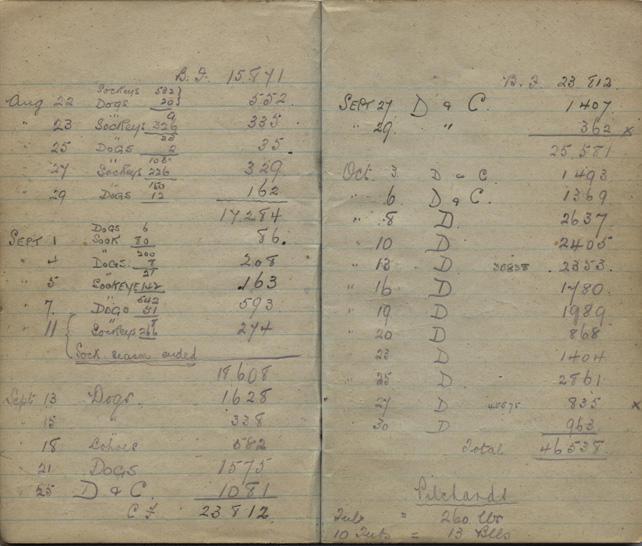 B.F. 15871
Aug 22 Sockeys 532
Dogs 20 552
" 23 " 9
Sockeys 326 335
" 25 " 33
Dogs 2 35.
" 27 " 103
Sockeys 226 329
" 29 " 150
Dogs 12 162
17284
Sept 1 Dogs 6
Sock 80 86.
" 4 " 200
Dogs 8 208
" 5 " 21
Sockeye 142 163
" 7. " 542
Dogs 51 593
" 11 " 8
Sockeys 266 274
Sock. season ended
18608
Sept 13 Dogs. 1628
" 15 " 338
" 18 Cohoes 582
21 Dogs 1575
25 D & C. 1081
C F. 23812.
B.F. 23812
SEPT 27 D & C. 1407
" 29. " 362 x
25581
Oct. 3. D & C. 1493
" 6 D & C. 1369
" 8 D. 2637
" 10 D 2405
" 13 D 35838 2353.
" 16 D 1780
" 19 D 1989
" 20 D 868
" 23 D 1404
" 25 D 2861
" 27 D 45575 835 x
" 30 D 963
Total 46538.
Pilchards
Tub = 260 lbs
10 Tubs = 13 Blls